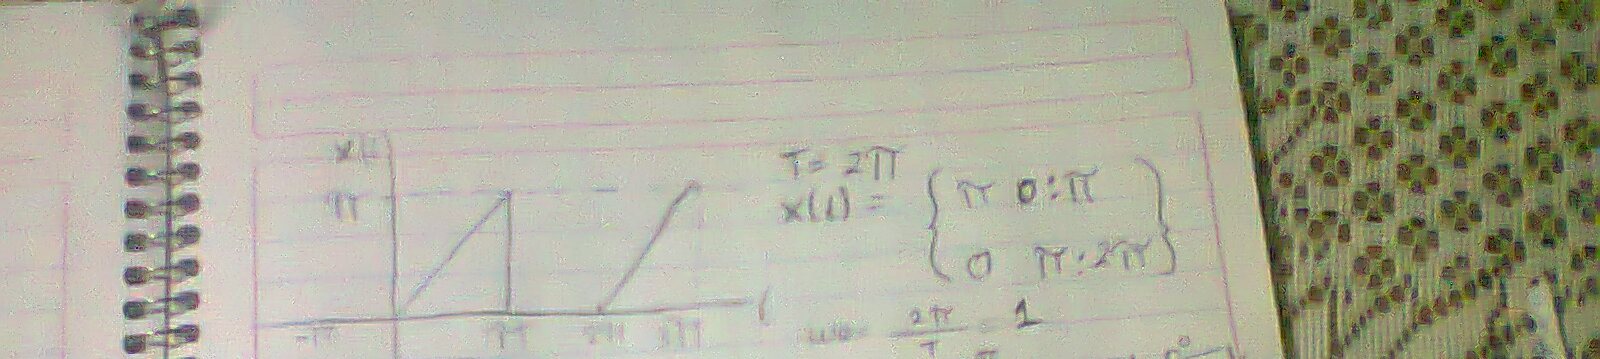 x(t)
π
-π π 2π 3π t
T = 2π
x(t) = { π 0:π
0 π:2π }
ω0 = 2π/T = 1